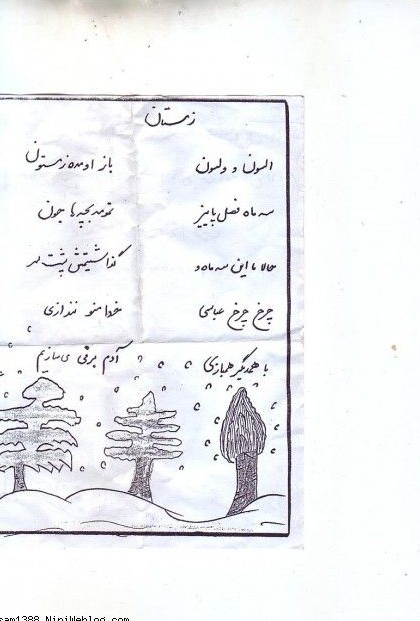 زمستان
السون و ولسون باز اومده زمستون
سه ماه فصل پاییز تموم بچه ها جون
حالا ما این سه ماه و گذاشتیمش پشت سر
چرخ چرخ عباسی خدا منو نندازی
با همدیگر همبازی آدم برفی می سازیم
sam1388.NiniWeblog.com